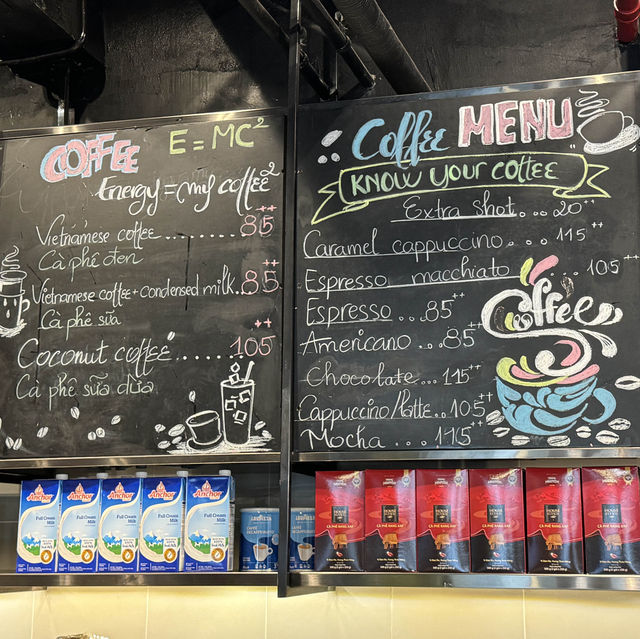 COFFEE
E = MC²
Energy = my coffee²
Vietnamese coffee........ 85++
Cà phê đen
Vietnamese coffee + condensed milk..85++
Cà phê sữa
Coconut coffee...... 105++
Cà phê sữa dừa
Coffee MENU
KNOW your coffee
Extra shot.... 20++
Caramel cappuccino... 115++
Espresso macchiato 105++
Espresso ..85++
Americano ...85++
Chocolate... 115++
Cappuccino/latte..105++
Mocha ... 115++
Coffee
Anchor
Full Cream
Milk
Anchor
Full Cream
Milk
Anchor
Full Cream
Milk
Anchor
Full Cream
Milk
Anchor
Full Cream
Milk
LAVAZZA
CÀ PHÊ RANG XAY
CÀ PHÊ RANG XAY
CÀ PHÊ RANG XAY
CÀ PHÊ RANG XAY
CÀ PHÊ RANG XAY
CÀ PHÊ RANG XAY